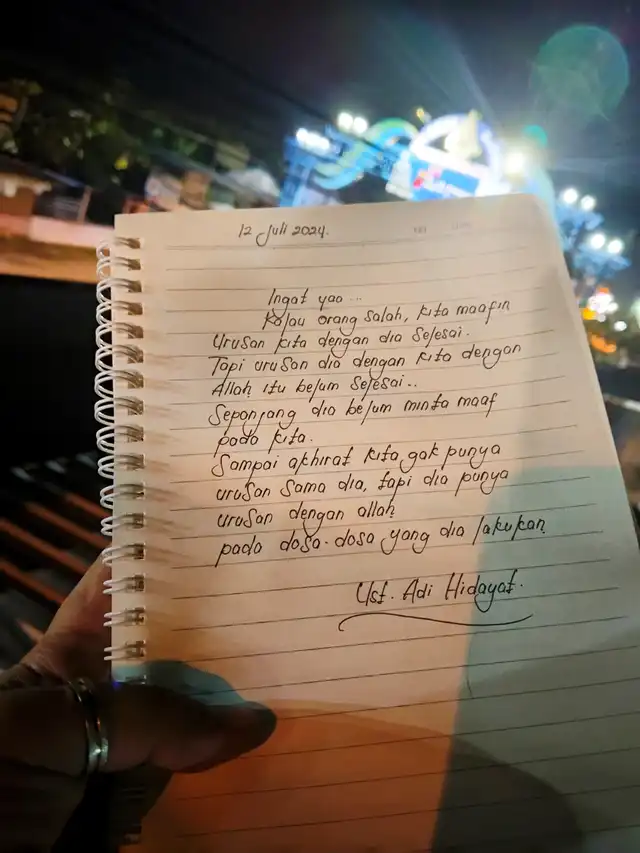 12 Juli 2024.
Ingat yaa...
Kalau orang salah, kita maafin
Urusan kita dengan dia selesai.
Tapi urusan dia dengan kita dengan
Allah itu belum selesai..
Sepanjang dia belum minta maaf
pada kita.
Sampai akhirat kita gak punya
urusan sama dia, tapi dia punya
urusan dengan allah
pada dosa-dosa yang dia lakukan
Ust. Adi Hidayat.